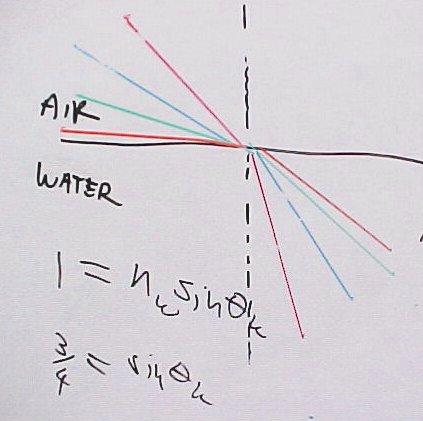 AIR
WATER
1 = n_k sin θ_k
3/4 = sin θ_k